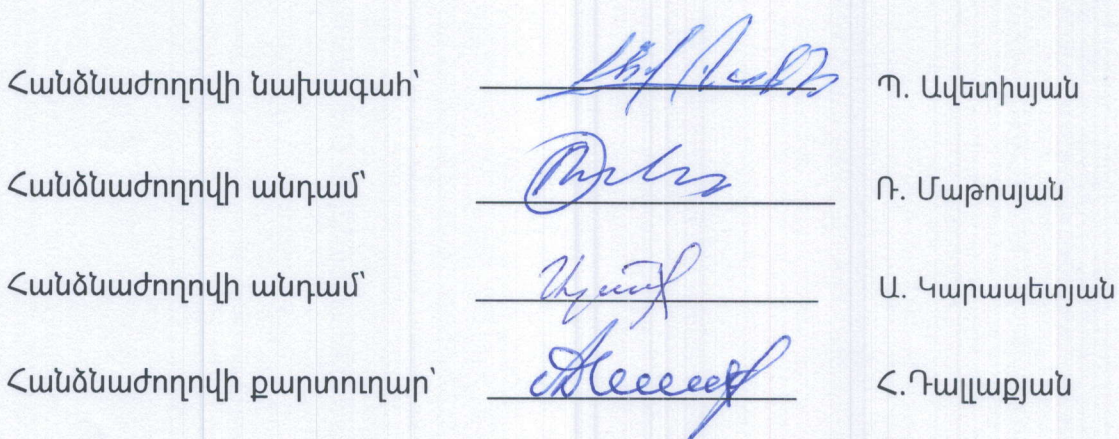 Հանձնաժողովի նախագահ՝ Պ. Ավետիսյան
Հանձնաժողովի անդամ՝ Ռ. Մաթոսյան
Հանձնաժողովի անդամ՝ Ա. Կարապետյան
Հանձնաժողովի քարտուղար՝ Հ.Դալլաքյան